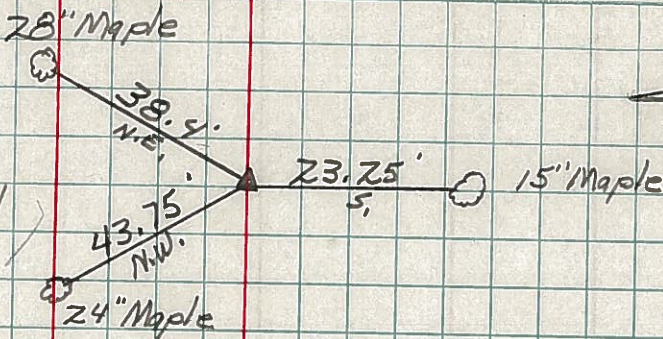 28" Maple
N.E.
23.25'
S.
15" Maple
43.75'
N.W.
24" Maple